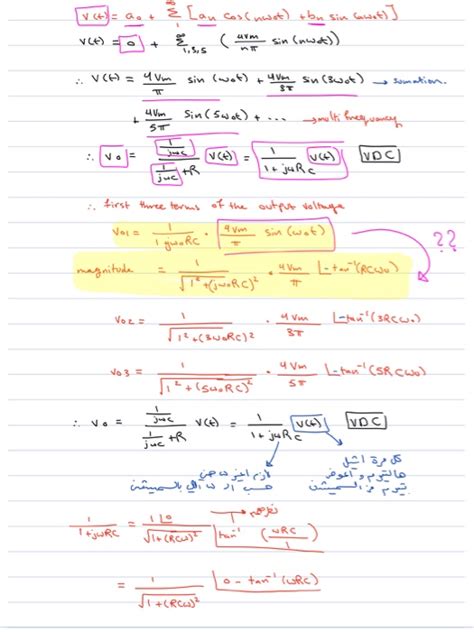 V(t) = a₀ + ∞Σ1 [aₙ cos(nω₀t) + bₙ sin(nω₀t)]
V(t) = 0 + ∞Σ1,3,5 (4Vm/nπ sin(nω₀t))
∴ V(t) = 4Vm/π sin(ω₀t) + 4Vm/3π sin(3ω₀t) → sumation.
+ 4Vm/5π sin(5ω₀t) + ... → multi frequancy
∴ V₀ = (1/jωc)/(1/jωc + R) V(t) = 1/(1+jωRc) V(t) VDC
∴ first three terms of the output voltage
V₀1 = 1/(1 jω₀RC) · 4Vm/π sin(ω₀t) ??
magnitude = 1/√(1²+(jω₀RC)²) · 4Vm/π ∟-tan⁻¹(RCω₀)
V₀2 = 1/√(1²+(3ω₀RC)²) · 4Vm/3π ∟-tan⁻¹(3RCω₀)
V₀3 = 1/√(1²+(5ω₀RC)²) · 4Vm/5π ∟-tan⁻¹(5RCω₀)
∴ V₀ = (1/jωc)/(1/jωc + R) V(t) = 1/(1+jωRc) V(t) VDC
كل مرة اشيل
لازم اغير
1/(1+jωRC) = 1∟0 / √(1+(RCω)²) ∟tan⁻¹(ωRC/1)
= 1/√(1+(RCω)²) ∟0 - tan⁻¹(ωRC)